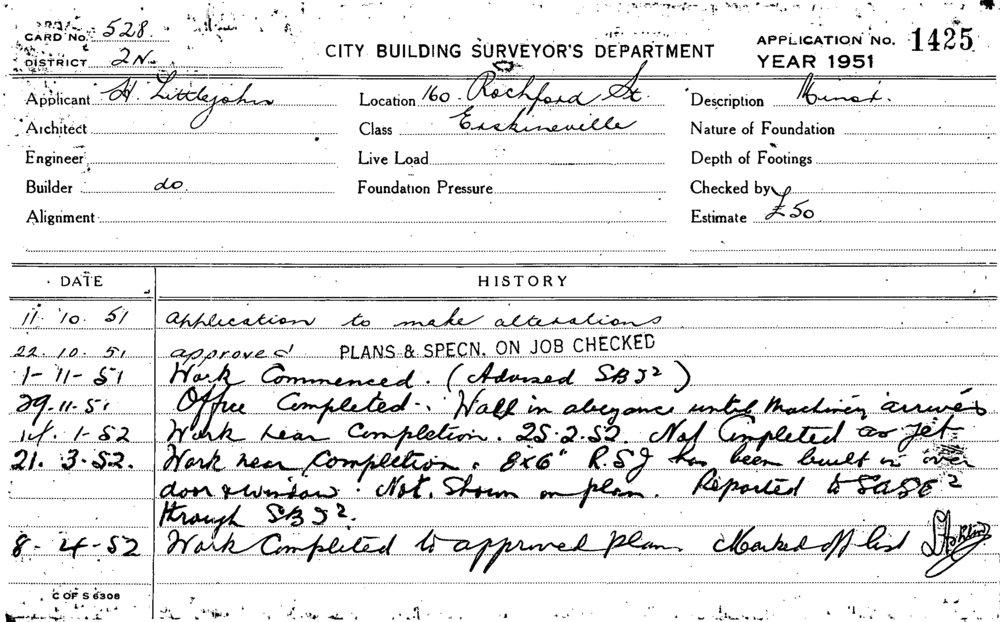 CARD No. 528.
DISTRICT 2N.
CITY BUILDING SURVEYOR'S DEPARTMENT
APPLICATION No. 1425
YEAR 1951
Applicant H. Littlejohn
Location 160. Rochford St.
Description Minor.
Architect
Class Erskineville
Nature of Foundation
Engineer
Live Load
Depth of Footings
Builder do.
Foundation Pressure
Checked by
Alignment
Estimate £50
DATE HISTORY
11. 10. 51 application to make alterations
22. 10. 51 approved PLANS & SPECN. ON JOB CHECKED
1-11-51 Work Commenced. (Advised SBI2)
29.11.51 Office Completed. Wall in abeyance until Machinery arrives
14. 1-52 Work near Completion. 25.2.52. Not Completed as yet
21. 3-52. Work near Completion. 8x6" R.S.J has been built in over
door & window. Not Shown on plan. Reported to
through SBI2.
8-4-52 Work Completed to approved plan. Marked off list
C OF S 6308